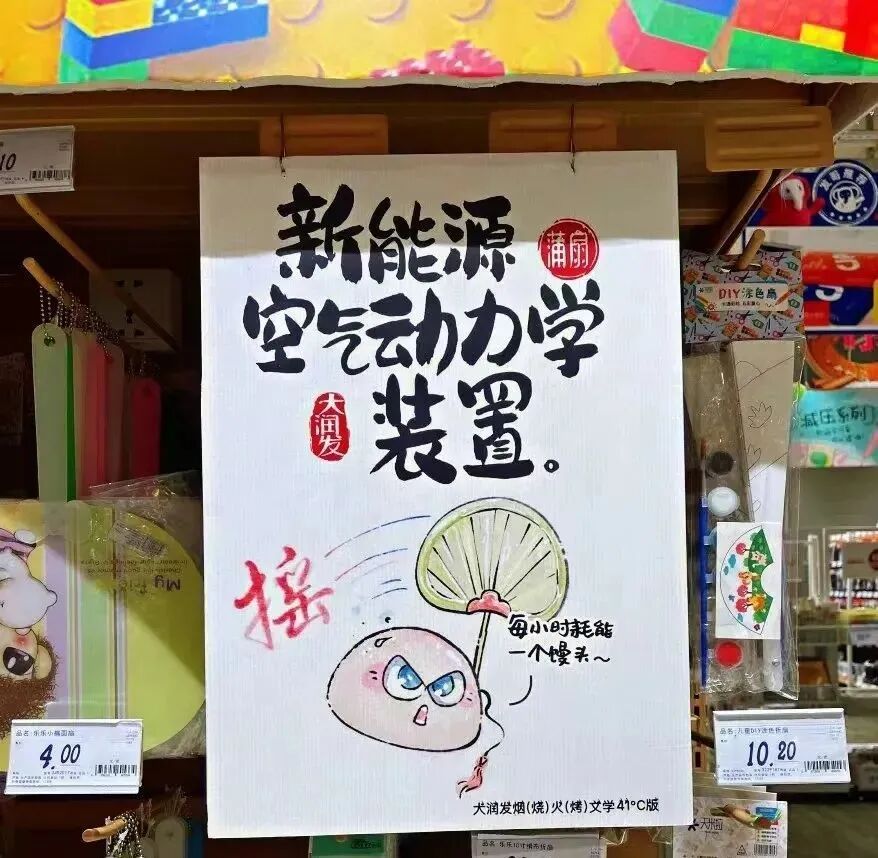 10
新能源
蒲扇
空气动力学
大润发
装置。
摇
每小时耗能
一个馒头~
大润发烟(烧)火(烤)文学41°C版
DIY涂色扇
减压系列
My
品名:乐乐小精面扇
4.00
品名:儿童DIY涂色折扇
10.20